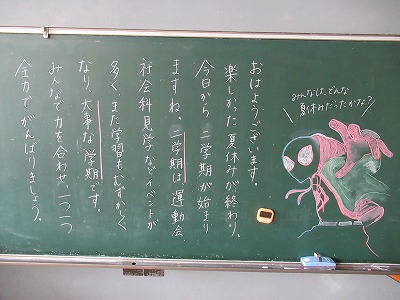 おはようございます。
楽しかった夏休みが終わり、
今日から二学期が始まり
ますね。二学期は、運動会、
社会科見学などイベントが
多く、また学習もむずかしく
なり、大事な学期です。
みんなで力を合わせ、一つ一つ
全力でがんばりましょう。
みんなは、どんな
夏休みだったかな？